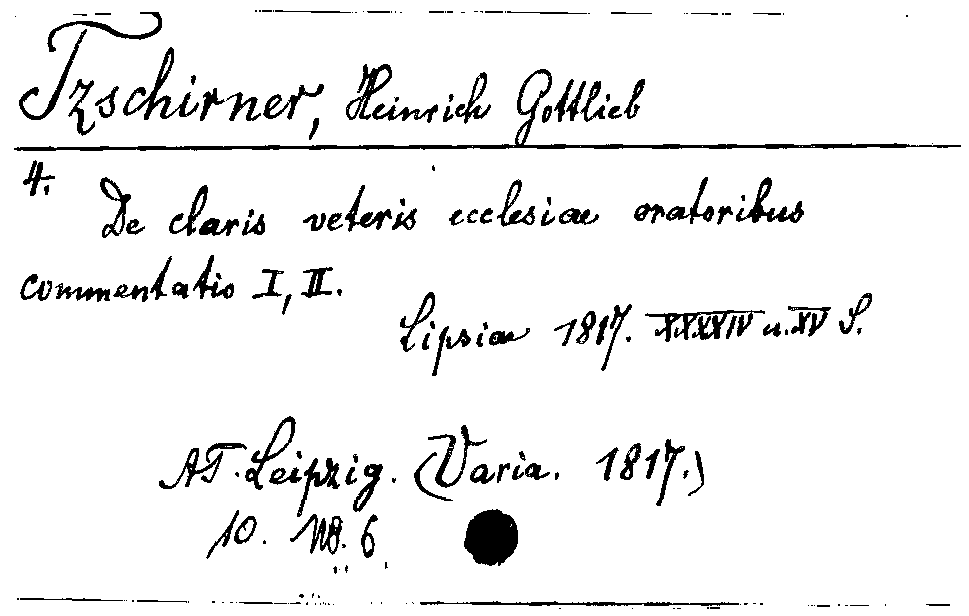 Tzschirner, Heinrich Gottlieb
4.
De claris veteris ecclesiae oratoribus
commentatio I, II.
Lipsiae 1817. XXXXIV u. XV S.
AT. Leipzig. (Varia. 1817.)
10. No. 6